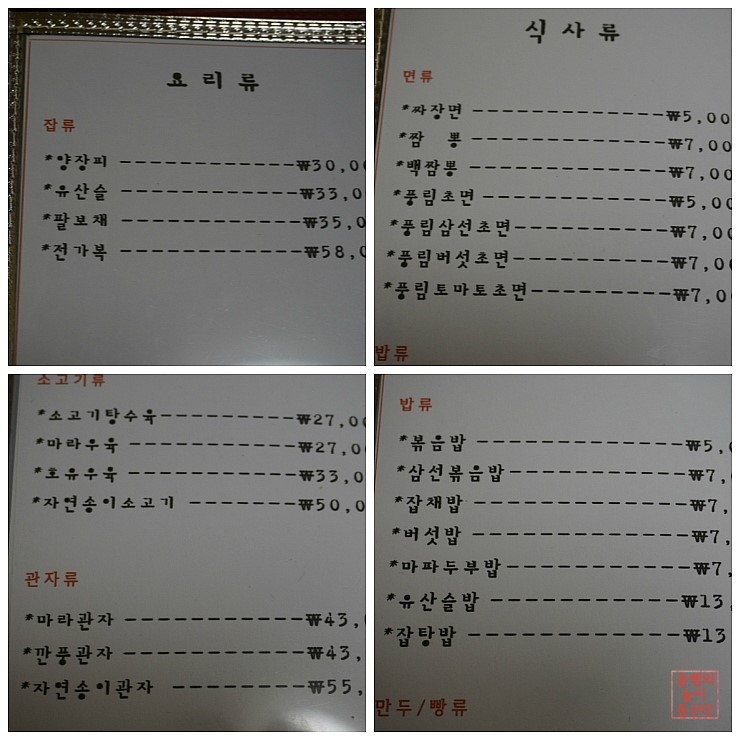 요리류
잡류
*양장피 ------------₩30,00
*유산슬 ------------₩33,0
*팔보채 ------------₩35,0
*전가복 ------------₩58,0
식사류
면류
*짜장면 -------------₩5,00
*짬 뽕 -------------₩7,00
*백짬뽕 -------------₩7,00
*풍림초면 ------------₩5,00
*풍림삼선초면----------₩7,00
*풍림버섯초면----------₩7,00
*풍림토마토초면---------₩7,00
밥류
소고기류
*소고기탕수육---------₩27,00
*마라우육 -----------₩27,0
*호유우육 -----------₩33,0
*자연송이소고기 -------₩50,0
관자류
*마라관자 -----------₩43,
*깐풍관자 -----------₩43,
*자연송이관자 --------₩55,
밥류
*볶음밥 ------------₩5,
*삼선볶음밥----------₩7,
*잡채밥 ------------₩7,
*버섯밥 ------------₩7,
*마파두부밥----------₩7,
*유산슬밥 -----------₩13
*잡탕밥 ------------₩13
만두/빵류